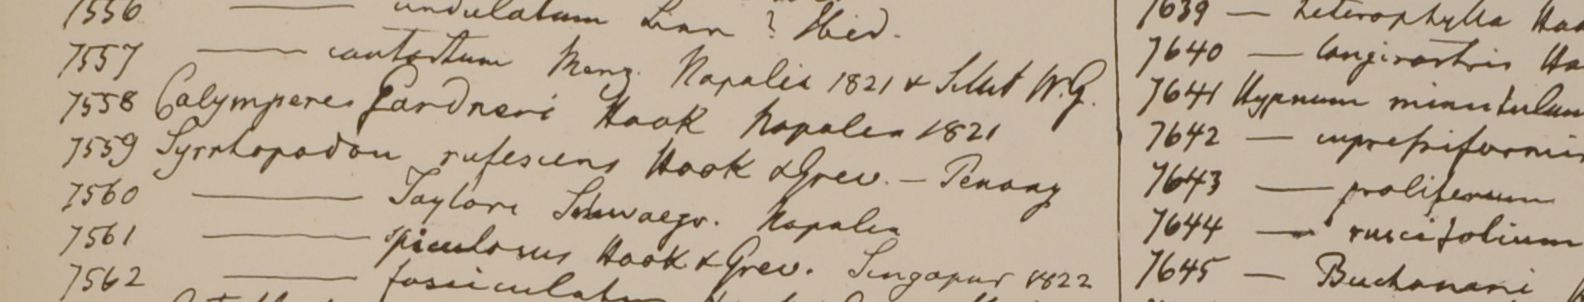 7556 —— undulatum Linn ? Ibid.
7557 —— contortum Menz. Napalia 1821 & Silhet W.G.
7558 Calymperes Gardneri Hook Napalia 1821
7559 Syrrhopodon rufescens Hook & Grev. — Penang
7560 —— Taylori Schwaegr. Napalia
7561 —— spiculosus Hook & Grev. Singapur 1822
7562 —— fasciculatum
7639 — heterophylla
7640 — longirostris
7641 Hypnum minutulum
7642 — cupressiformis
7643 — proliferum
7644 — ruscifolium
7645 — Buchanani